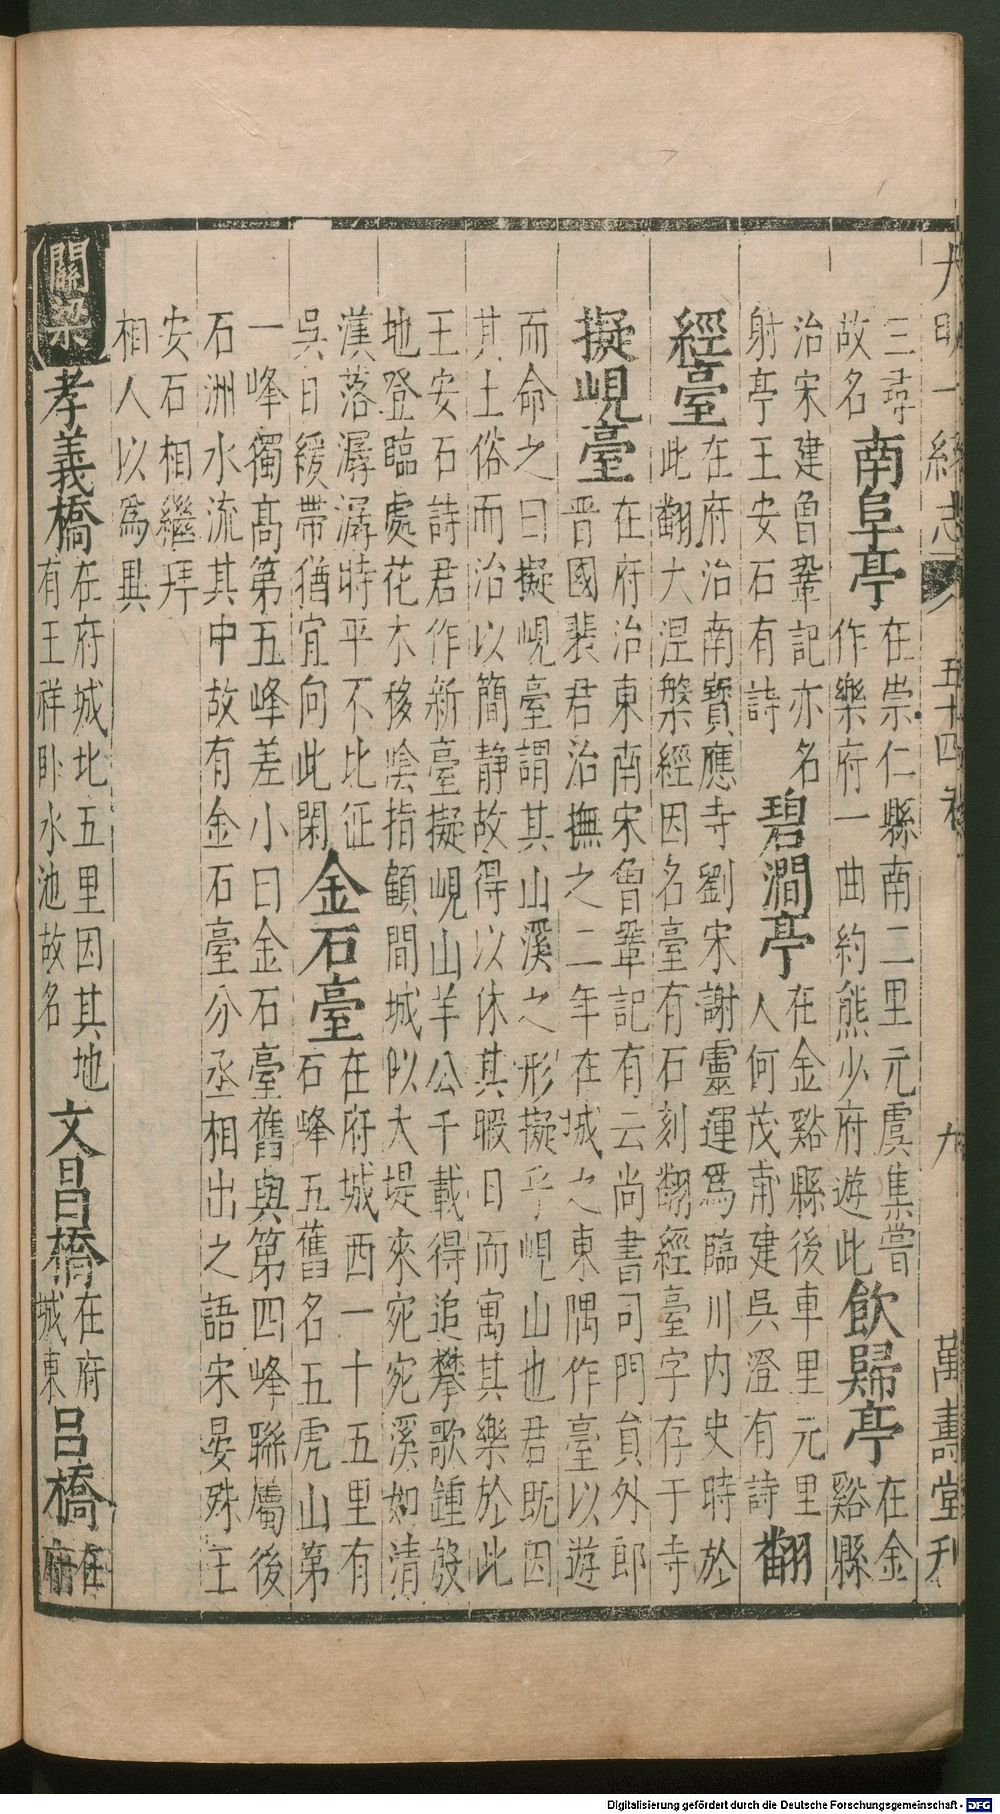 大明一統志 八 五十四卷 九 萬壽堂刊
三尋
故名
南阜亭
在崇仁縣南二里元虞集嘗
作樂府一曲約熊少府遊此
飲歸亭
在金
谿縣
治宋建曾鞏記亦名
射亭王安石有詩
碧澗亭
在金谿縣後車里元里
人何茂甫建吳澄有詩
翻
經臺
在府治南寶應寺劉宋謝靈運爲臨川內史時於
此翻大涅槃經因名臺有石刻翻經臺字存于寺
擬峴臺
在府治東南宋曾鞏記有云尚書司門員外郎
晉國裴君治撫之二年在城之東隅作臺以遊
而命之曰擬峴臺謂其山溪之形擬乎峴山也君既因
其土俗而治以簡靜故得以休其暇日而寓其樂於此
王安石詩君作新臺擬峴山羊公千載得追攀歌鍾放
地登臨處花木移陰指顧間城似大堤來宛宛溪如清
漢落潺潺時平不比征
吳日緩帶猶宜向此閑
金石臺
在府城西一十五里有
石峰五舊名五虎山第
一峰獨高第五峰差小曰金石臺舊與第四峰聯屬後
石洲水流其中故有金石臺分丞相出之語宋晏殊王
安石相繼拜
相人以爲異
關梁
孝義橋
在府城北五里因其地
有王祥臥氷池故名
文昌橋
在府
城東
呂橋
在
府
Digitalisierung gefördert durch die Deutsche Forschungsgemeinschaft - DFG